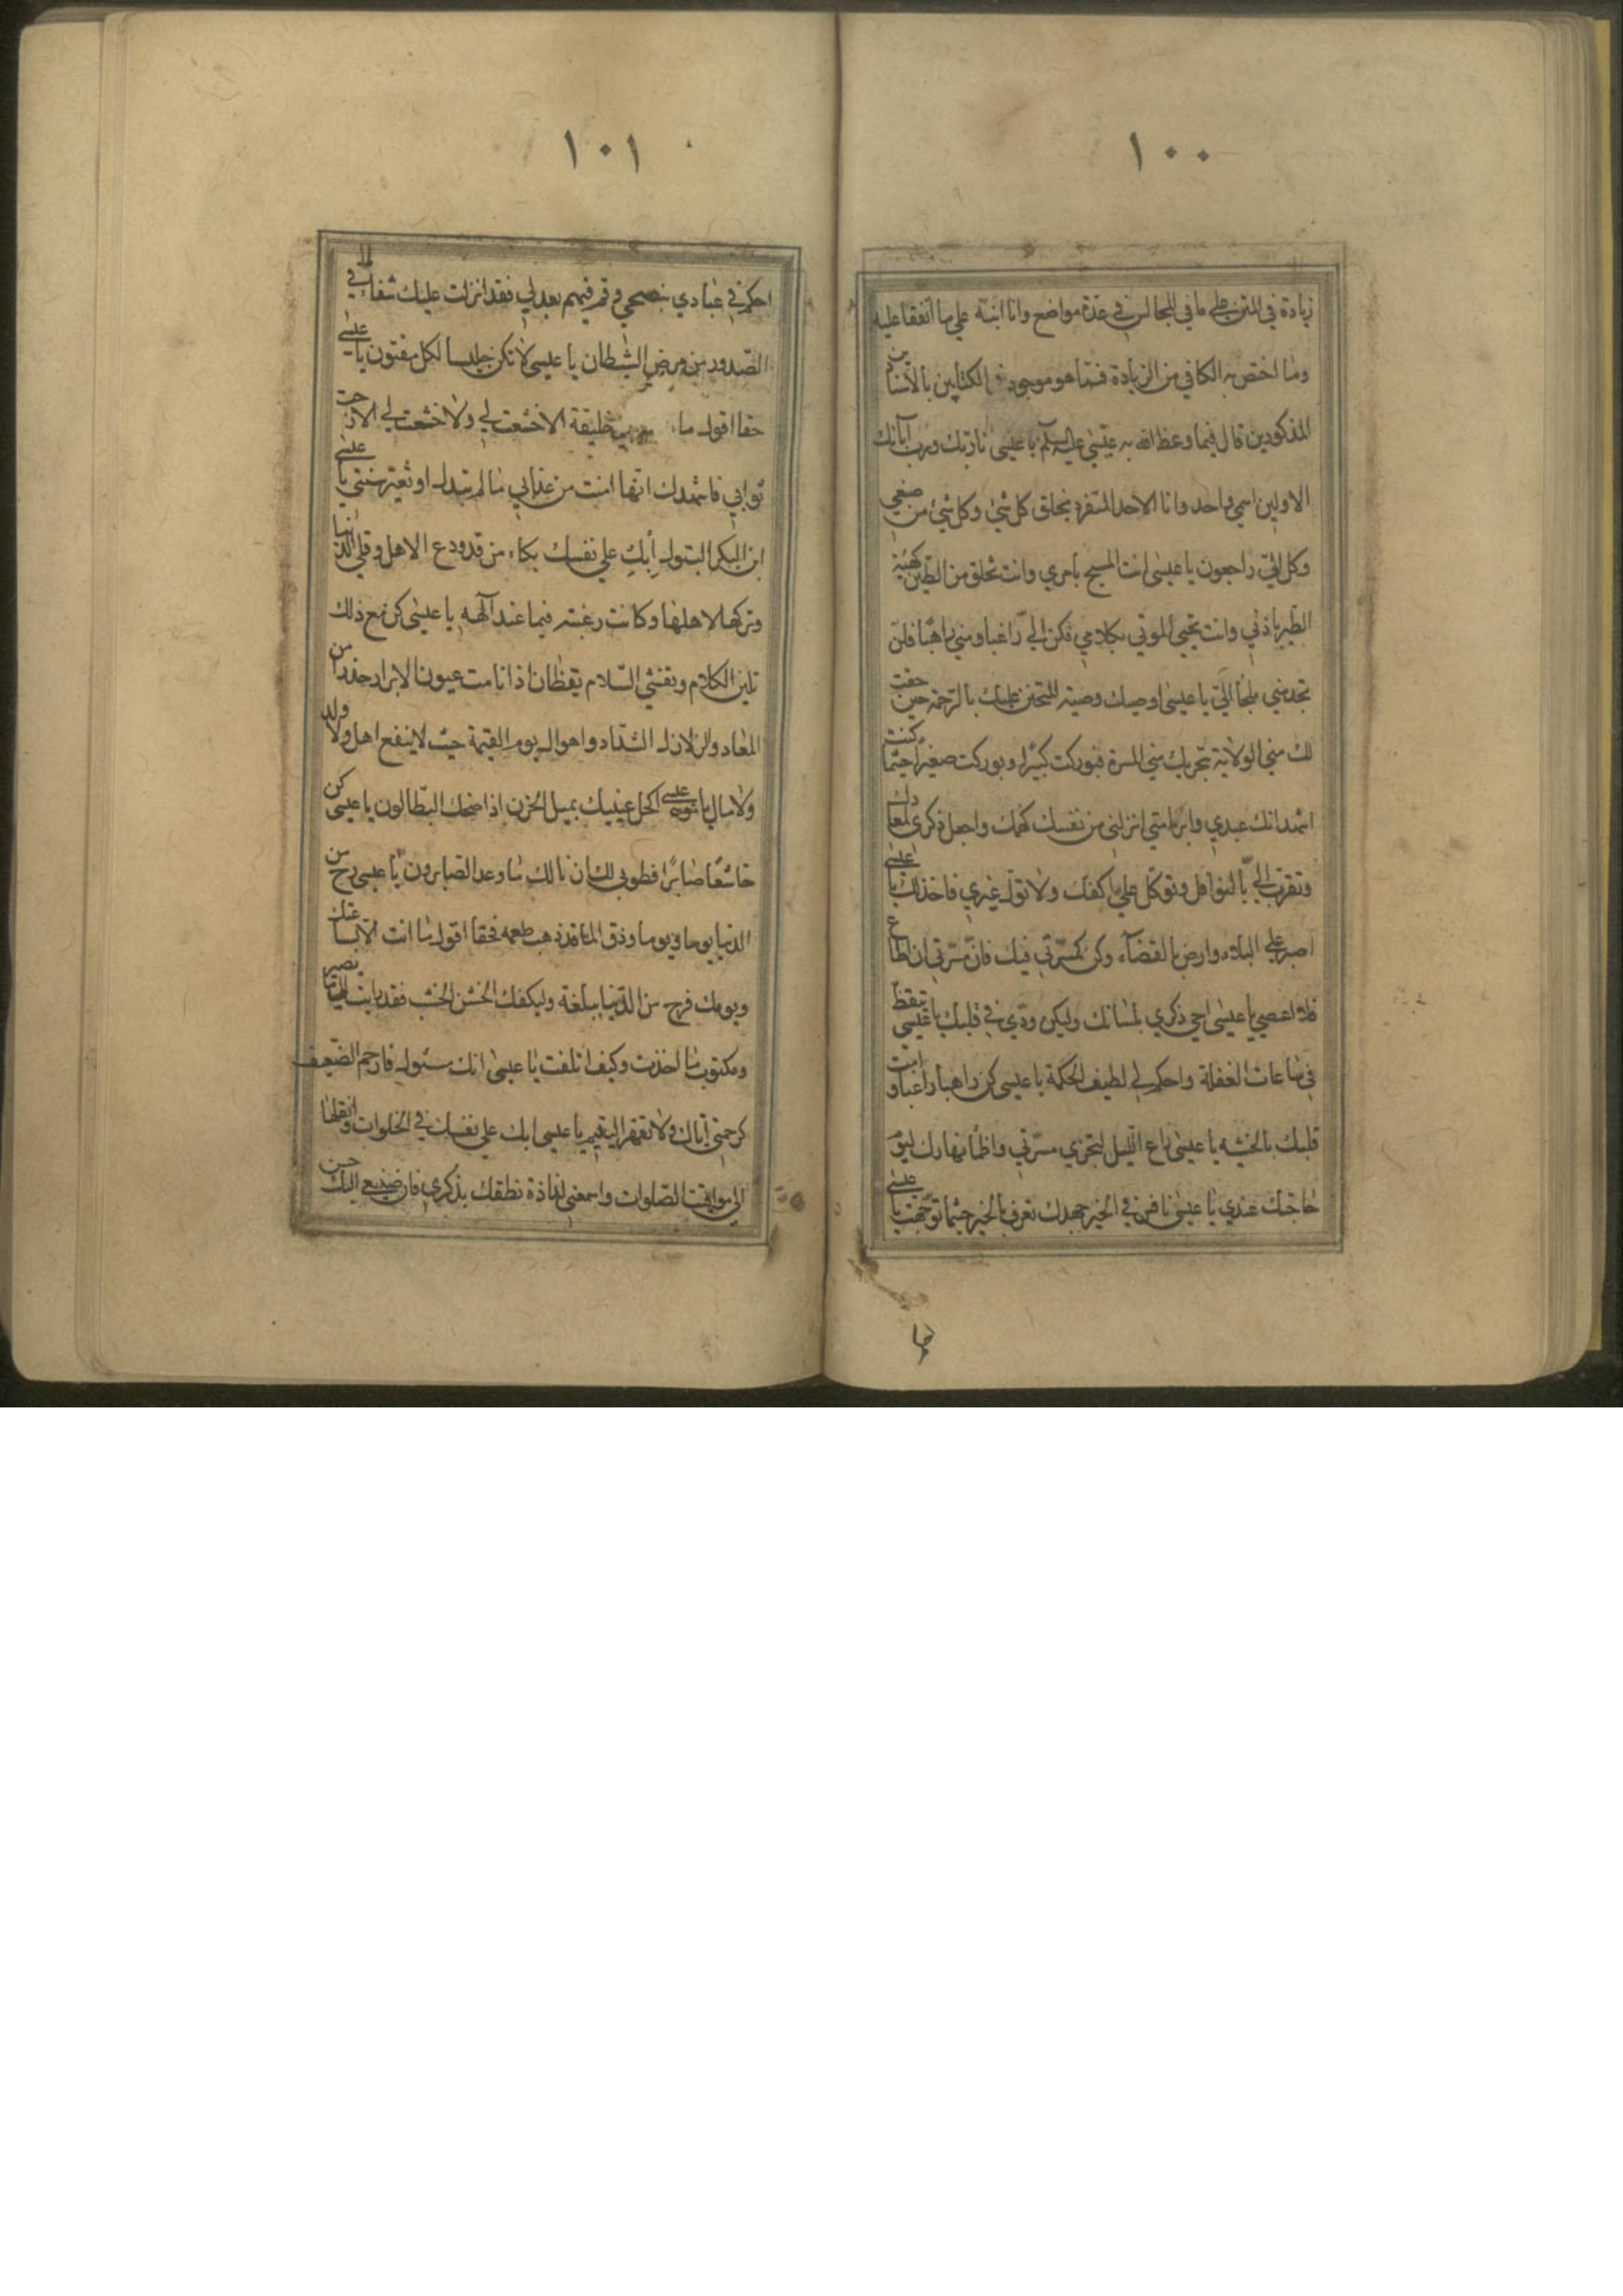 ١٠٠
زيادة في المتن على ما في المجالس في عدة مواضع وانا اثبته على ما اتفقا عليه
وما اختص به الكافي من الزيادة فمما هو موجود في الكتابين بالاسناد
المذكورين قال فيما وعظ الله به عيسى عليه السلم يا عيسى انا ربك ورب آبائك
الاولين اسمي واحد وانا الاحد المتفرد بخلق كل شئ وكل شئ من صنعي
وكل الي راجعون يا عيسى انت المسيح بامري وانت تخلق من الطين كهيئة
الطير باذني وانت تحيي الموتى بكلامي فكن الي راغبا ومني راهبا فلن
تجد مني ملجا الا الي يا عيسى اوصيك وصية المتحنن عليك بالرحمة حين حقت
لك مني الولاية بتحريك مني المسرة فبوركت كبيرا وبوركت صغيرا حيثما كنت
اشهد انك عبدي وابن امتي انزلني من نفسك كهمك واجعل ذكري لمعادك
وتقرب الي بالنوافل وتوكل علي اكفك ولا تول غيري فاخذلك يا عيسى
اصبر على البلاء وارض بالقضاء وكن كمسرتي فيك فان مسرتي ان اطاع
فلا اعصى يا عيسى احي ذكري بلسانك وليكن ودي في قلبك يا عيسى تيقظ
في ساعات الغفلة واحكم لي لطيف الحكمة يا عيسى كن راهبا راغبا وامت
قلبك بالخشيه يا عيسى راع الليل لتحري مسرتي واظما نهارك ليوم
حاجتك عندي يا عيسى نافس في الخير جهدك تعرف بالخير حيثما توجهت يا عيسى
١٠١
احكم في عبادي بنصحي وقم فيهم بعدلي فقد انزلت عليك شفاء لما في
الصدور من مرض الشيطان يا عيسى لا تكن جليسا لكل مفتون يا عيسى
حقا اقول ما خليقة الا خشعت لي ولا خشعت لي الا رجت
ثوابي فاشهدك انها امنت من عذابي ما لم تبدل او تغير سنتي يا عيسى
ابن البكر البتول ابك على نفسك بكاء من قد ودع الاهل وقلى الدنيا
وتركها لاهلها وكانت رغبته فيما عند آلهه يا عيسى كن مع ذلك
تلين الكلام وتفشي السلام يقظان اذا نامت عيون الابرار حذرا من
المعاد والزلازل الشداد واهوال يوم القيمة حيث لا ينفع اهل ولا ولد
ولا مال يا عيسى اكحل عينيك بميل الحزن اذا ضحك البطالون يا عيسى كن
خاشعا صابرا فطوبى لك ان نالك ما وعد الصابرون يا عيسى رح من
الدنيا يوما ويوما وذق لما قد ذهب طعمه فحقا اقول ما انت الا بساعتك
ويومك فرح من الدنيا ببلغة وليكفك الخشن الجشب فقد رايت الى ما تصير
ومكتوب ما اخذت وكيف اتلفت يا عيسى انك مسئول فارحم الضعيف
كرحمتي اياك ولا تقهر اليتيم يا عيسى ابك على نفسك في الخلوات وانقل
الى مواقيت الصلوات واسمعني لذاذة نطقك بذكري فان صنيعي اليك حسن